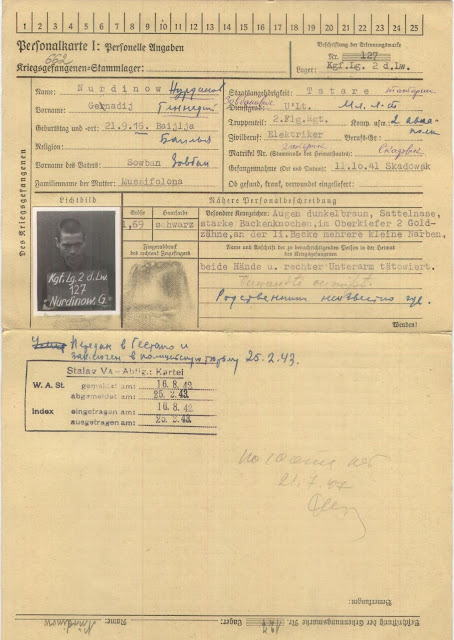 1 2 3 4 5 6 7 8 9 10 11 12 13 14 15 16 17 18 19 20 21 22 23 24 25
Personalkarte I: Personelle Angaben
Beschriftung der Erkennungsmarke
Nr. 127
Kriegsgefangenen-Stammlager:
Lager: Kgf.Lg. 2 d.Lw.
Des Kriegsgefangenen
Name: Nurdinow
Staatsangehörigkeit: Tatare
Vorname: Gennadij Геннадий
Dienstgrad: U'Lt. Мл. л-т
Geburtstag und -ort: 21.9.15. Baijlja
Truppenteil: 2.Flg.Rgt. Komp. usw.: 2 авиа
полк
Religion:
Zivilberuf: Elektriker Berufs-Gr.:
Matrikel Nr. (Stammrolle des Heimatstaates):
Vorname des Vaters: Sowban Зовбан
Gefangennahme (Ort und Datum): 11.10.41 Skadowsk
Familienname der Mutter: Mussifolona
Ob gesund, krank, verwundet eingeliefert:
Lichtbild
Nähere Personalbeschreibung
Größe Haarfarbe Besondere Kennzeichen: Augen dunkelbraun, Sattelnase,
1,69 schwarz starke Backenknochen, im Oberkiefer 2 Gold-
zähne, an der li. Backe mehrere kleine Narben,
Fingerabdruck
des rechten Zeigefingers
Name und Anschrift der zu benachrichtigenden Person in der Heimat
des Kriegsgefangenen
beide Hände u. rechter Unterarm tätowiert.
Kgf.Lg.2 d.Lw.
127
Nurdinow. G.
Родственники неизвестно где.
Wenden!
Передан в Гестапо и
заключен в полицейскую тюрьму 25.2.43.
Stalag VA - Abtlg.: Kartei
W. A. St. gemeldet am: 16. 8. 42
abgemeldet am: 25. 2. 43
Index eingetragen am: 16. 8. 42
ausgetragen am: 25. 2. 43
21.7.47
Bemerkungen:
Beschriftung der Erkennungsmarke Nr. 127 Lager:
Name: Nurdinow